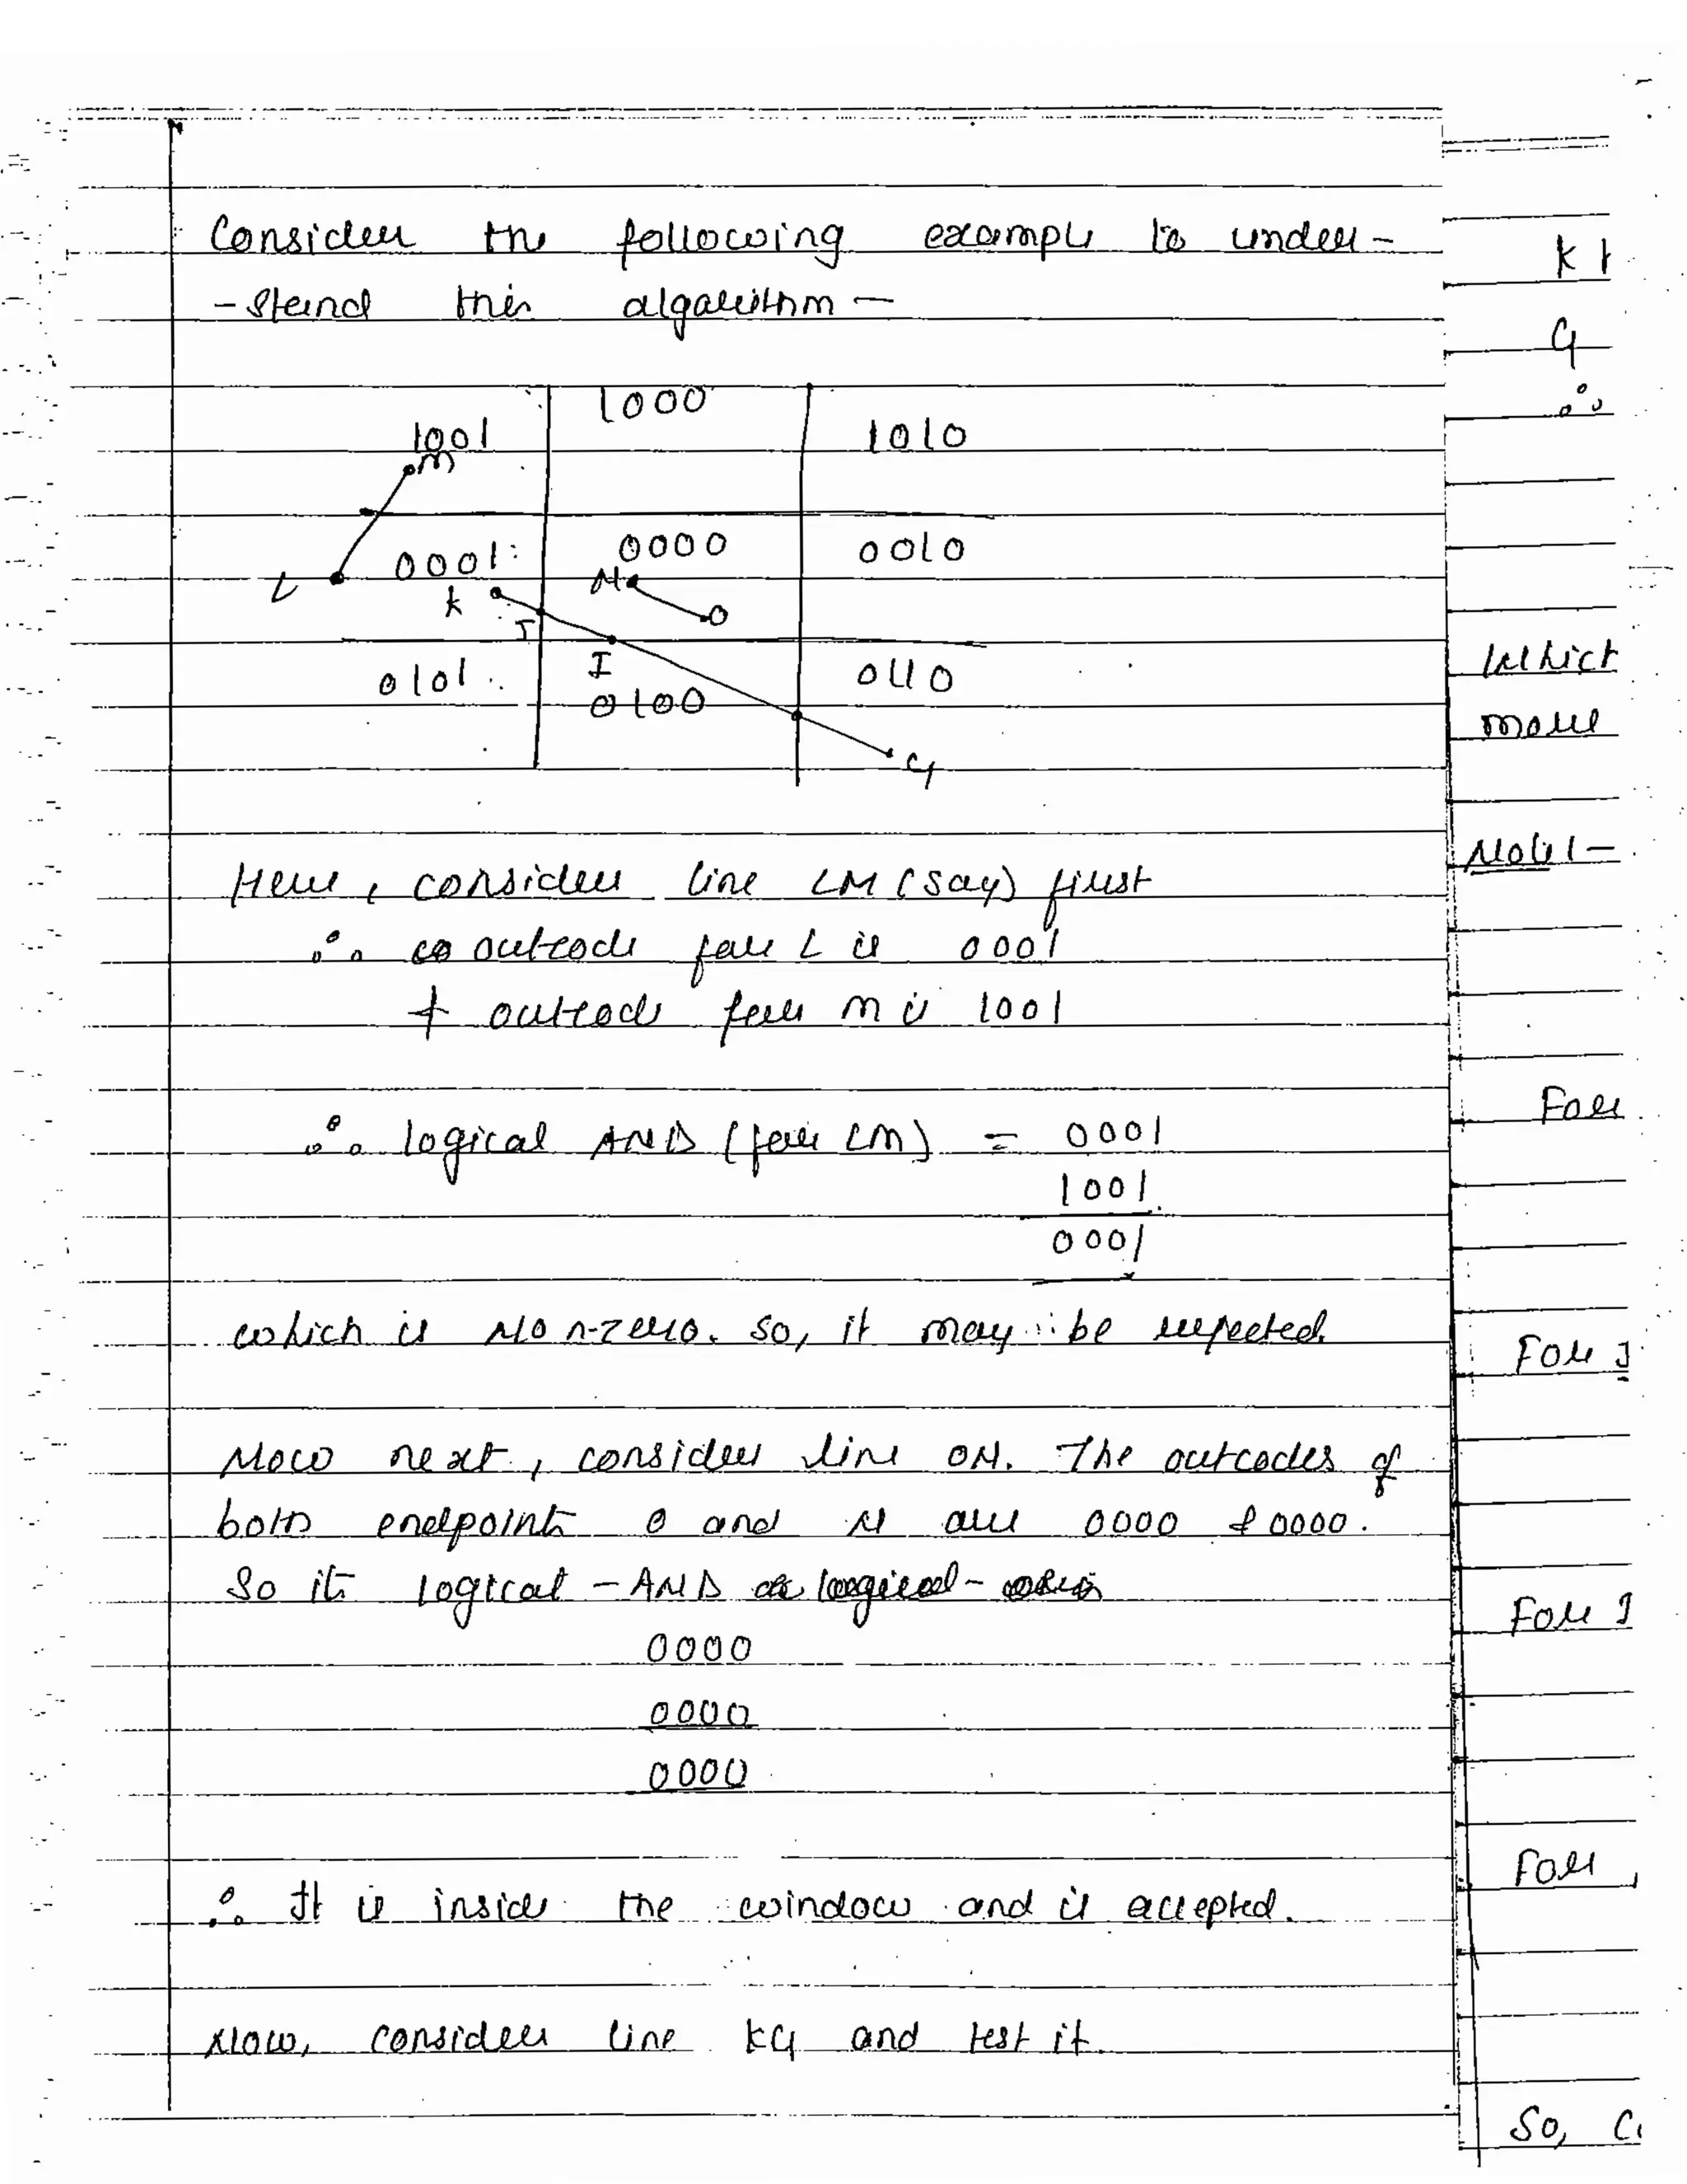 Consider the following example to under-
-stand this algorithm —
1000
1001
1010
M
0001
0000
0010
L
K
N
O
J
I
0101
0110
0100
G
Here, consider line LM (say) first
∴ outcode for L is 0001
& outcode for M is 1001
∴ logical AND (for LM) = 0001
1001
0001
which is Non-zero. So, it may be rejected.
Now next, consider line ON. The outcodes of
both endpoints O and N are 0000 & 0000.
So its logical - AND
0000
0000
0000
∴ It is inside the window and is accepted.
Now, consider line KG and test it.
K
G
∴
Which
more
Note 1 -
For
For
For
For
So,